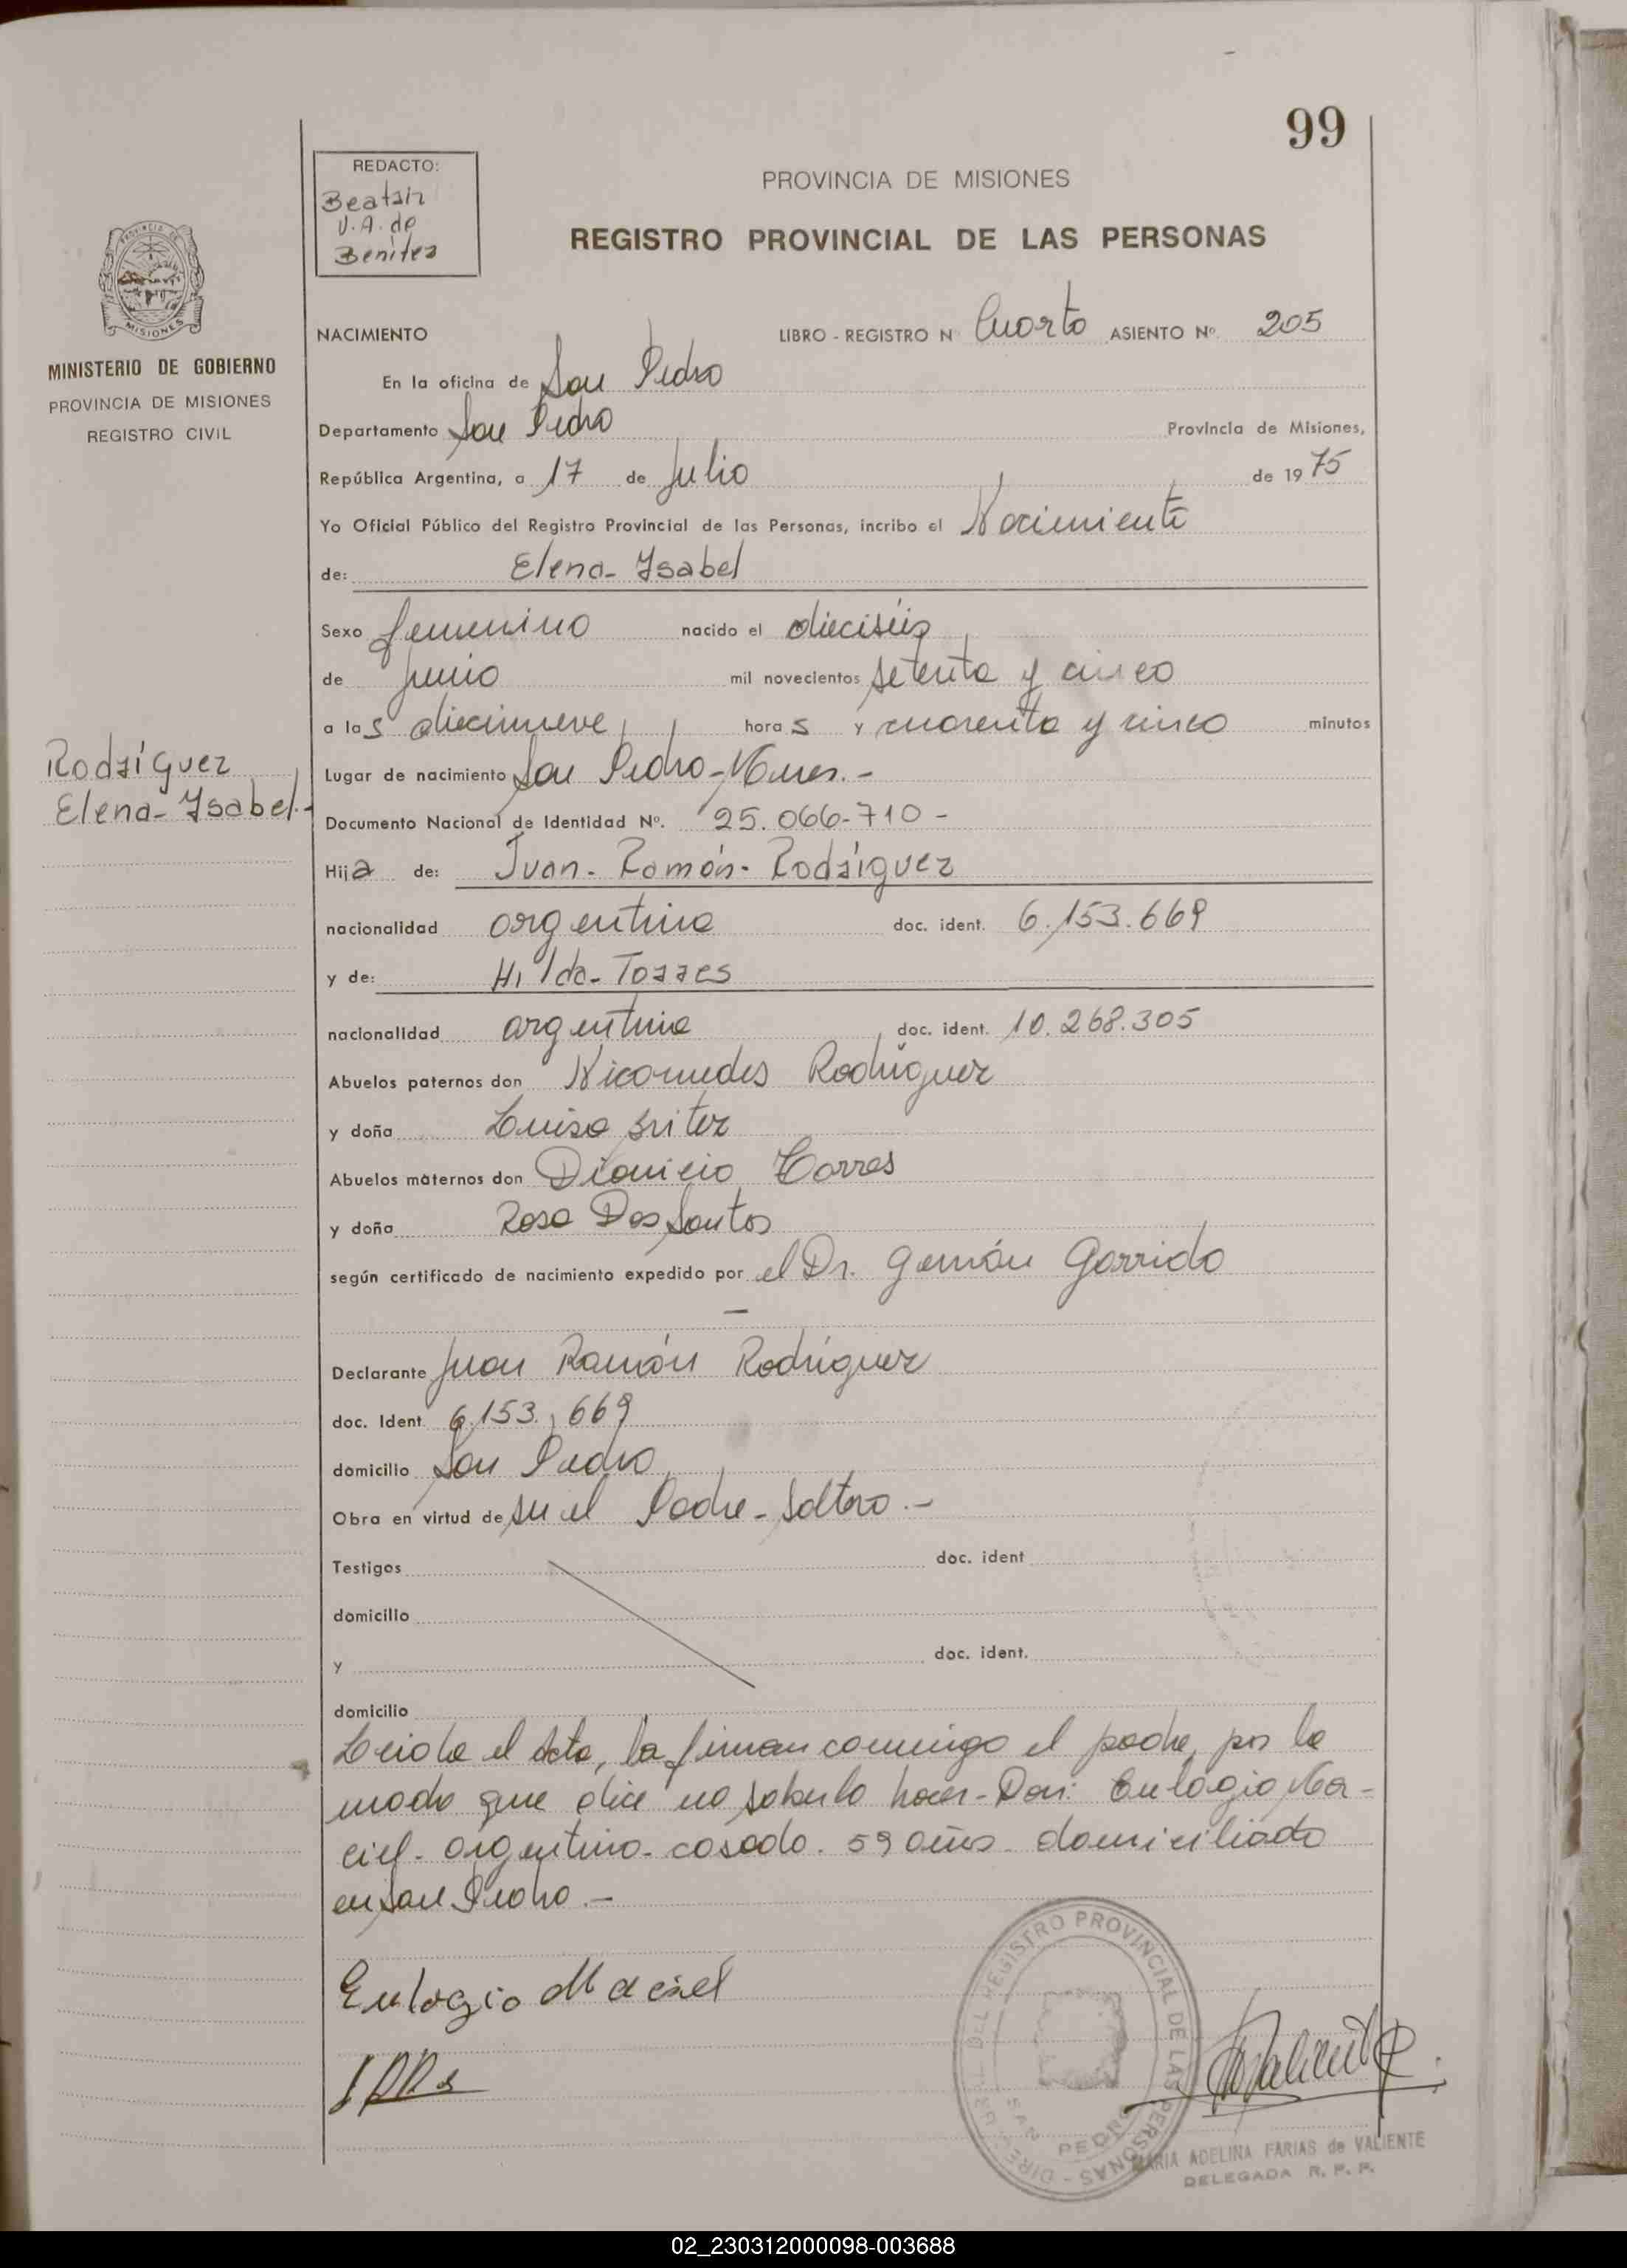 99
REDACTO:
Beatriz
V.A. de
Benítez
PROVINCIA DE MISIONES
REGISTRO PROVINCIAL DE LAS PERSONAS
MISIONES
MINISTERIO DE GOBIERNO
PROVINCIA DE MISIONES
REGISTRO CIVIL
NACIMIENTO LIBRO - REGISTRO N Cuarto ASIENTO Nº. 205
En la oficina de San Pedro
Departamento San Pedro Provincia de Misiones,
República Argentina, a 17 de Julio de 1975
Yo Oficial Público del Registro Provincial de las Personas, incribo el Nacimiento
de: Elena-Ysabel
Sexo femenino nacido el dieciséis
de junio mil novecientos setenta y cinco
a las diecinueve horas y cuarenta y cinco minutos
Rodríguez
Elena-Ysabel.-
Lugar de nacimiento San Pedro-Mnes.-
Documento Nacional de Identidad Nº. 25.066.710-
Hija de: Juan-Ramón-Rodríguez
nacionalidad argentina doc. ident. 6.153.669
y de: Hilda-Torres
nacionalidad argentina doc. ident. 10.268.305
Abuelos paternos don Nicomedes Rodríguez
y doña Luisa
Abuelos maternos don Dionicio Torres
y doña Rosa Dos Santos
según certificado de nacimiento expedido por el Dr. Germán Garrido
Declarante Juan Ramón Rodríguez
doc. Ident. 6.153.669
domicilio San Pedro
Obra en virtud de su el Padre-Soltero.-
Testigos doc. ident
domicilio
y doc. ident.
domicilio
Leida el Acta, la firman conmigo el padre, por la
madre que dice no saberlo hacer-Don: Eulogio Ma-
ciel-argentino-casado. 59 años-domiciliado
en San Pedro.-
Eulogio Maciel
DIRE. GRAL. DEL REGISTRO PROVINCIAL DE LAS PERSONAS
SAN PEDRO
MARIA ADELINA FARIAS de VALIENTE
DELEGADA R. P. P.
02_230312000098-003688